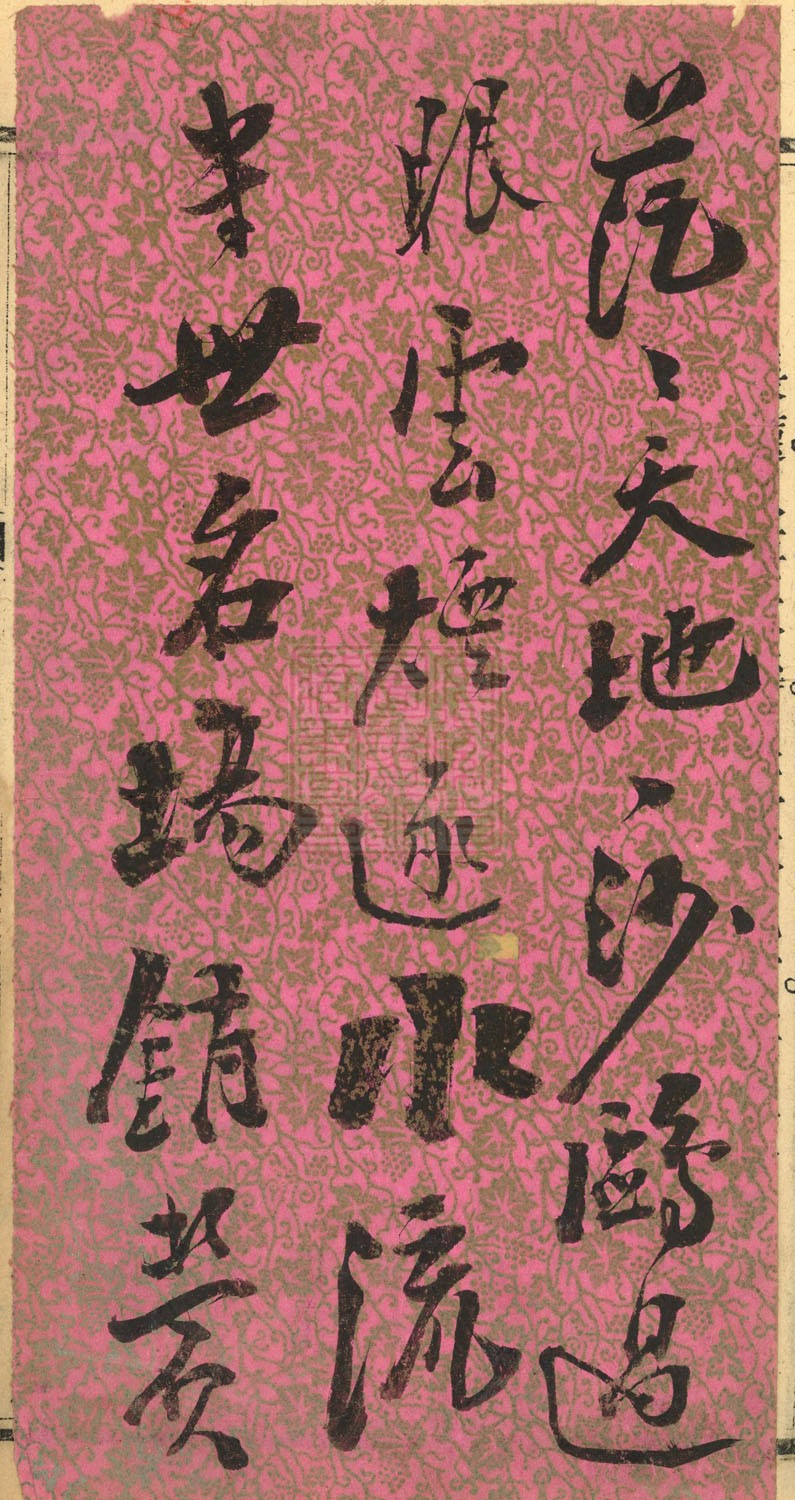 茫〻天地一沙鷗過
眼雲煙逐水流
半世名場銷